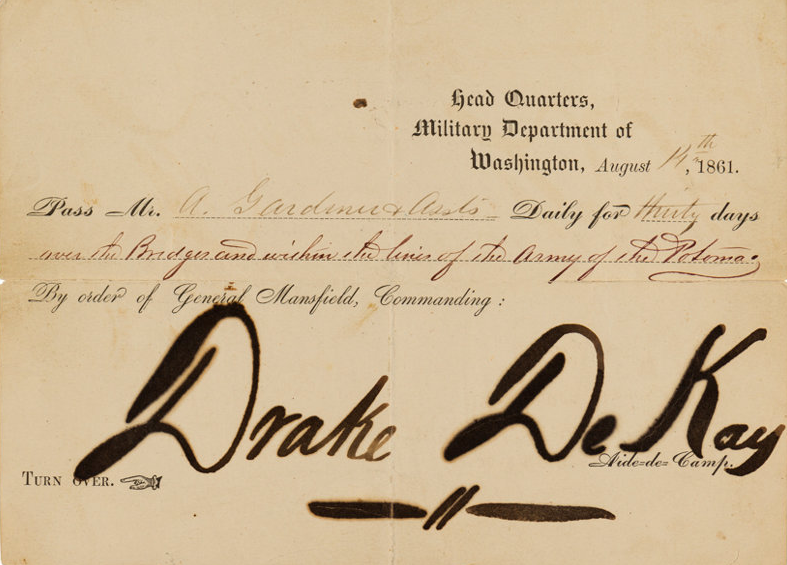 Head Quarters,
Military Department of
Washington, August 14th, 1861.
Pass Mr. A. Gardner & Assts Daily for thirty days
over the Bridges and within the lines of the Army of the Potomac
By order of General Mansfield, Commanding:
Drake De Kay
Aide-de-Camp.
TURN OVER.